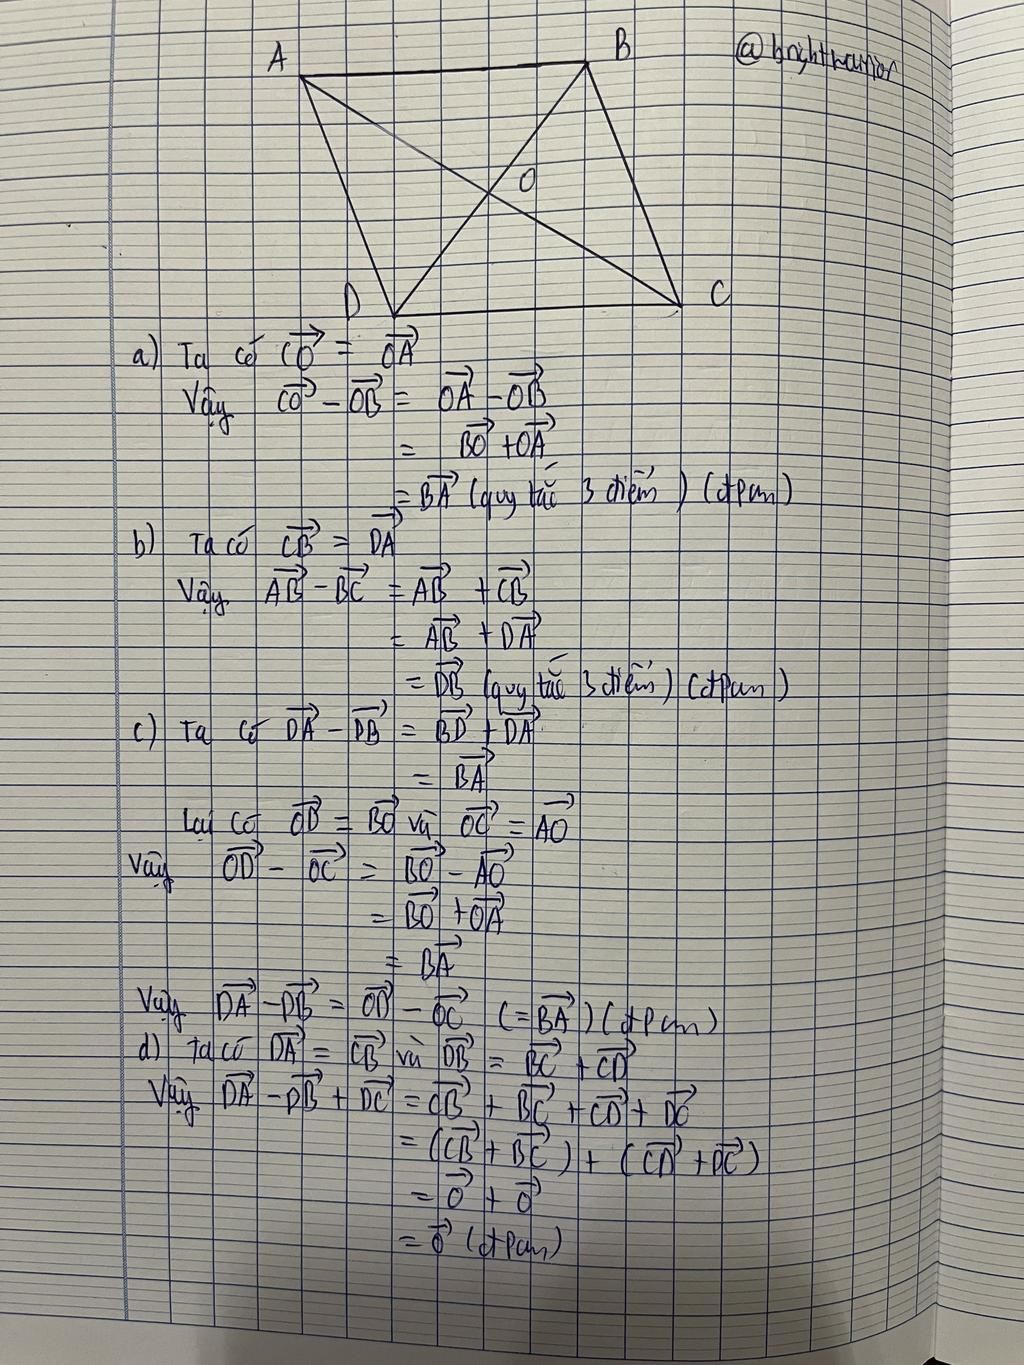 A B @brightwarrior
O
D C
a) Ta có CO→ = OA→
Vậy CO→ - OB→ = OA→ - OB→
= BO→ + OA→
= BA→ (quy tắc 3 điểm) (đpcm)
b) Ta có CB→ = DA→
Vậy AB→ - BC→ = AB→ + CB→
= AB→ + DA→
= DB→ (quy tắc 3 điểm) (đpcm)
c) Ta có DA→ - DB→ = BD→ + DA→
= BA→
Lại có OD→ = BO→ và OC→ = AO→
Vậy OD→ - OC→ = BO→ - AO→
= BO→ + OA→
= BA→
Vậy DA→ - DB→ = OD→ - OC→ (= BA→) (đpcm)
d) Ta có DA→ = CB→ và DB→ = BC→ + CD→
Vậy DA→ - DB→ + DC→ = CB→ + BC→ + CD→ + DC→
= (CB→ + BC→) + (CD→ + DC→)
= 0→ + 0→
= 0→ (đpcm)